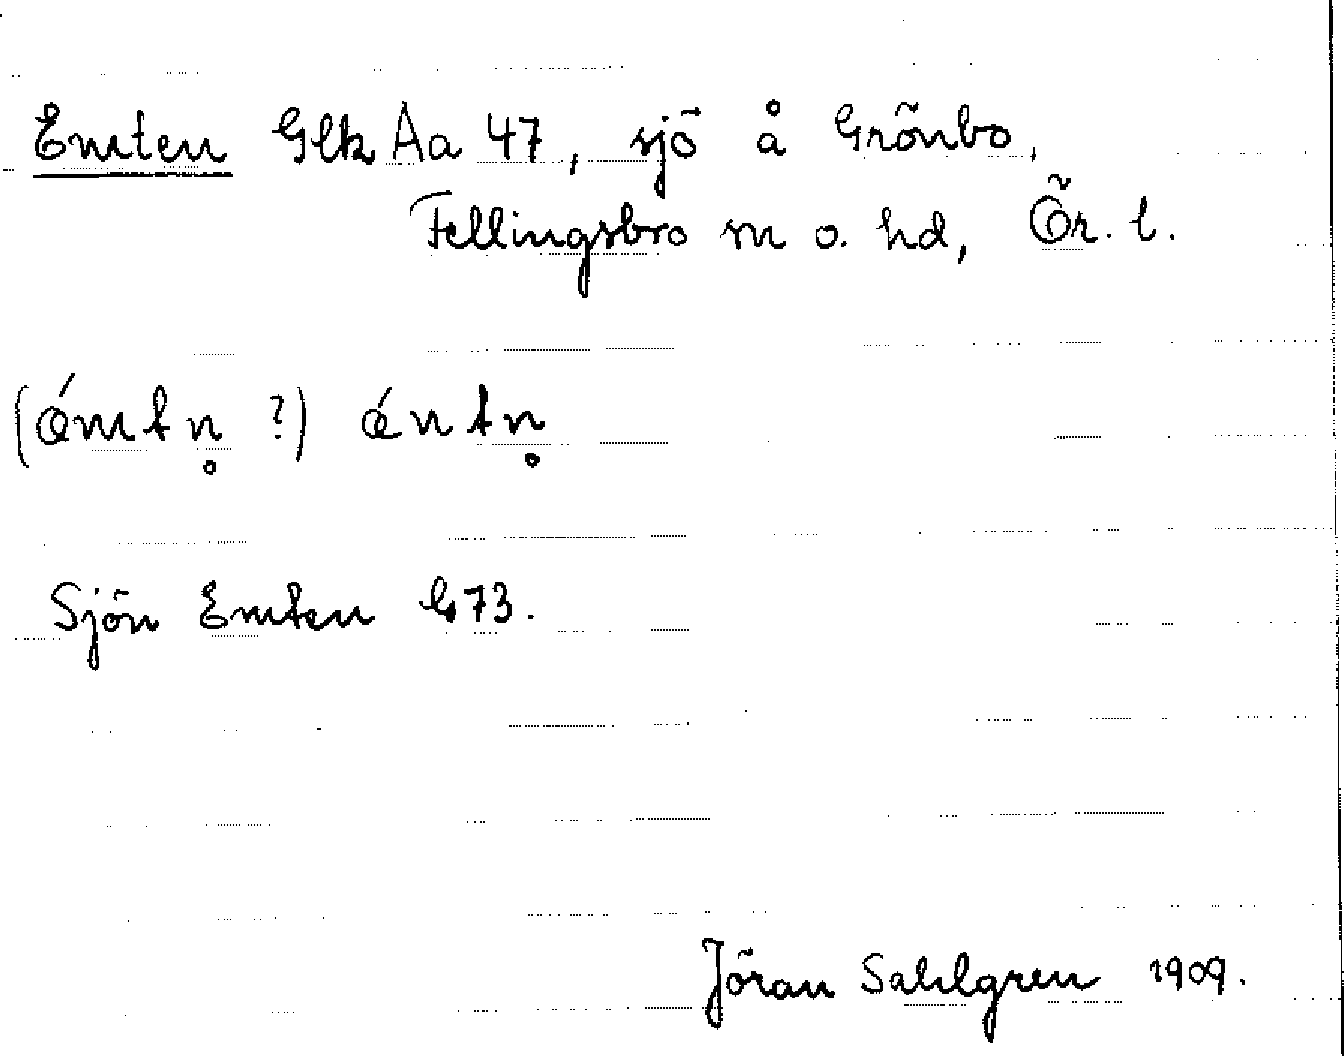 Emten Glk Aa 47, sjö å Grönbo,
Fellingsbro sn o. hd, Ör. l.
(ǽmtn̥ ?) ǽntn̥
Sjön Emten G73.
Jöran Sahlgren 1909.